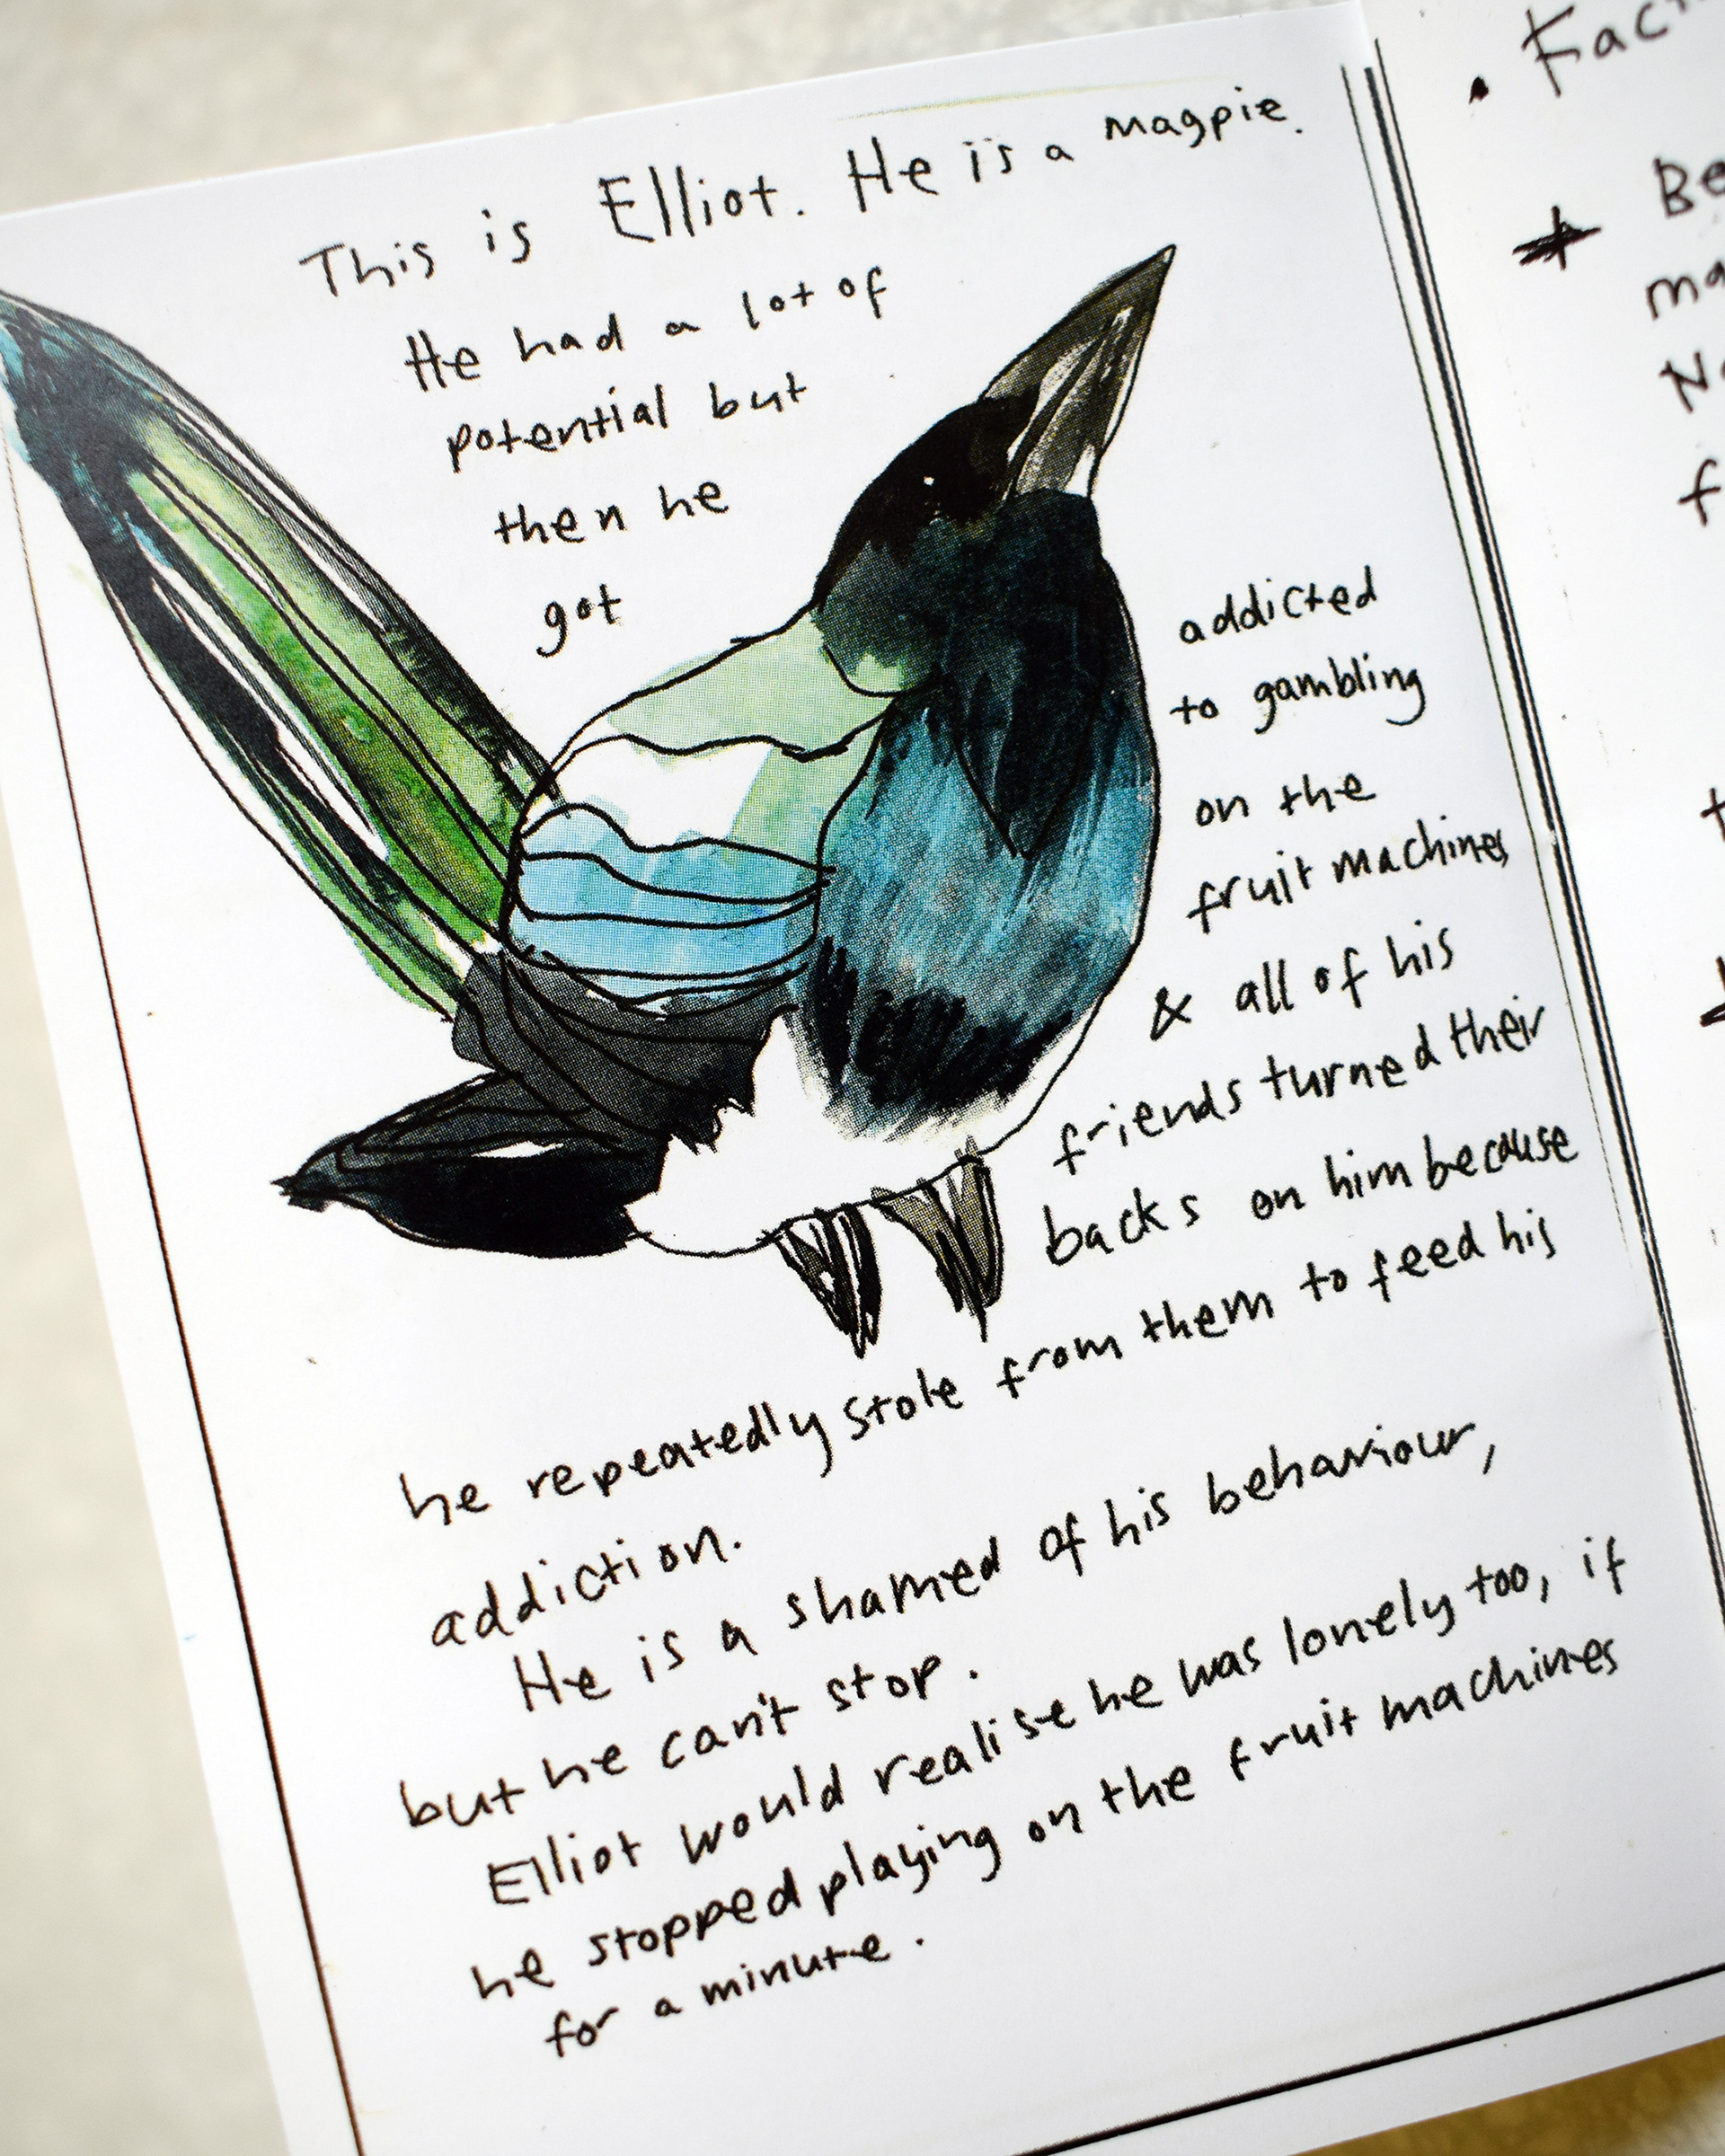 This is Elliot. He is a magpie.
He had a lot of
potential but
then he
got
addicted
to gambling
on the
fruit machines
& all of his
friends turned their
backs on him because
he repeatedly stole from them to feed his
addiction.
He is a shamed of his behaviour,
but he can't stop.
Elliot would realise he was lonely too, if
he stopped playing on the fruit machines
for a minute.